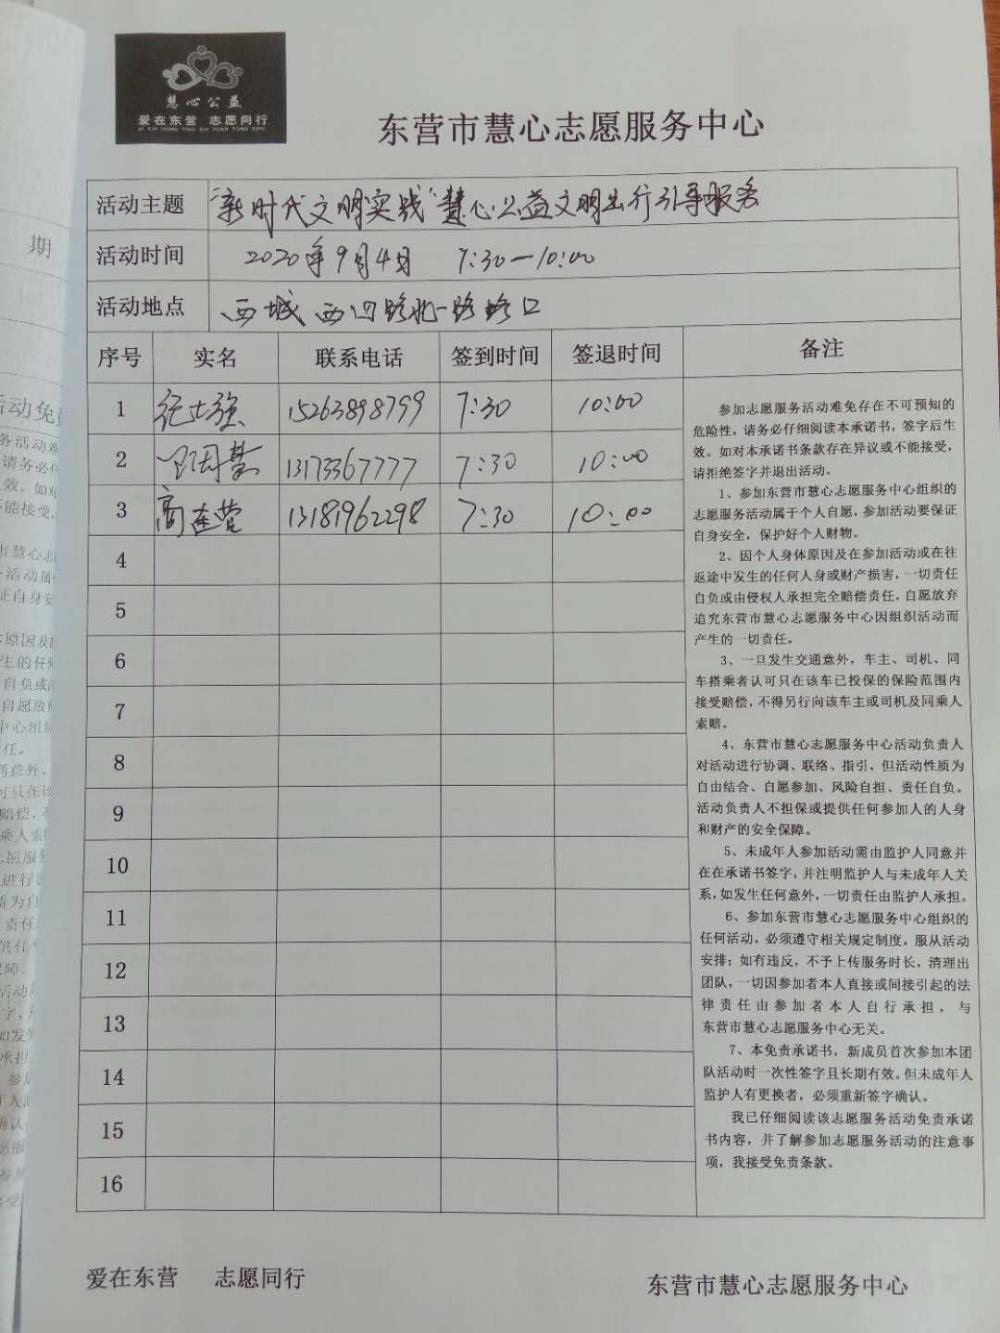 慧心公益
爱在东营 志愿同行
AI ZAI DONG YING ZHI YUAN TONG XING
东营市慧心志愿服务中心
活动主题 "新时代文明实践"慧心公益文明出行引导服务
活动时间 2020年9月4日 7:30—10:00
活动地点 西城 西四路北一路路口
序号 实名 联系电话 签到时间 签退时间 备注
1 15263898799 7:30 10:00
2 13173367777 7:30 10:00
3 商连营 13181962298 7:30 10:00
4
5
6
7
8
9
10
11
12
13
14
15
16
参加志愿服务活动难免存在不可预知的
危险性，请务必仔细阅读本承诺书，签字后生
效。如对本承诺书条款存在异议或不能接受，
请拒绝签字并退出活动。
1、参加东营市慧心志愿服务中心组织的
志愿服务活动属于个人自愿，参加活动要保证
自身安全，保护好个人财物。
2、因个人身体原因及在参加活动或在往
返途中发生的任何人身或财产损害，一切责任
自负或由侵权人承担完全赔偿责任，自愿放弃
追究东营市慧心志愿服务中心因组织活动而
产生的一切责任。
3、一旦发生交通意外，车主、司机、同
车搭乘者认可只在该车已投保的保险范围内
接受赔偿，不得另行向该车主或司机及同乘人
索赔。
4、东营市慧心志愿服务中心活动负责人
对活动进行协调、联络、指引，但活动性质为
自由结合、自愿参加、风险自担、责任自负。
活动负责人不担保或提供任何参加人的人身
和财产的安全保障。
5、未成年人参加活动需由监护人同意并
在在承诺书签字，并注明监护人与未成年人关
系，如发生任何意外，一切责任由监护人承担。
6、参加东营市慧心志愿服务中心组织的
任何活动，必须遵守相关规定制度，服从活动
安排；如有违反，不予上传服务时长，清理出
团队，一切因参加者本人直接或间接引起的法
律责任由参加者本人自行承担，与
东营市慧心志愿服务中心无关。
7、本免责承诺书，新成员首次参加本团
队活动时一次性签字且长期有效。但未成年人
监护人有更换者，必须重新签字确认。
我已仔细阅读该志愿服务活动免责承诺
书内容，并了解参加志愿服务活动的注意事
项，我接受免责条款。
爱在东营 志愿同行 东营市慧心志愿服务中心